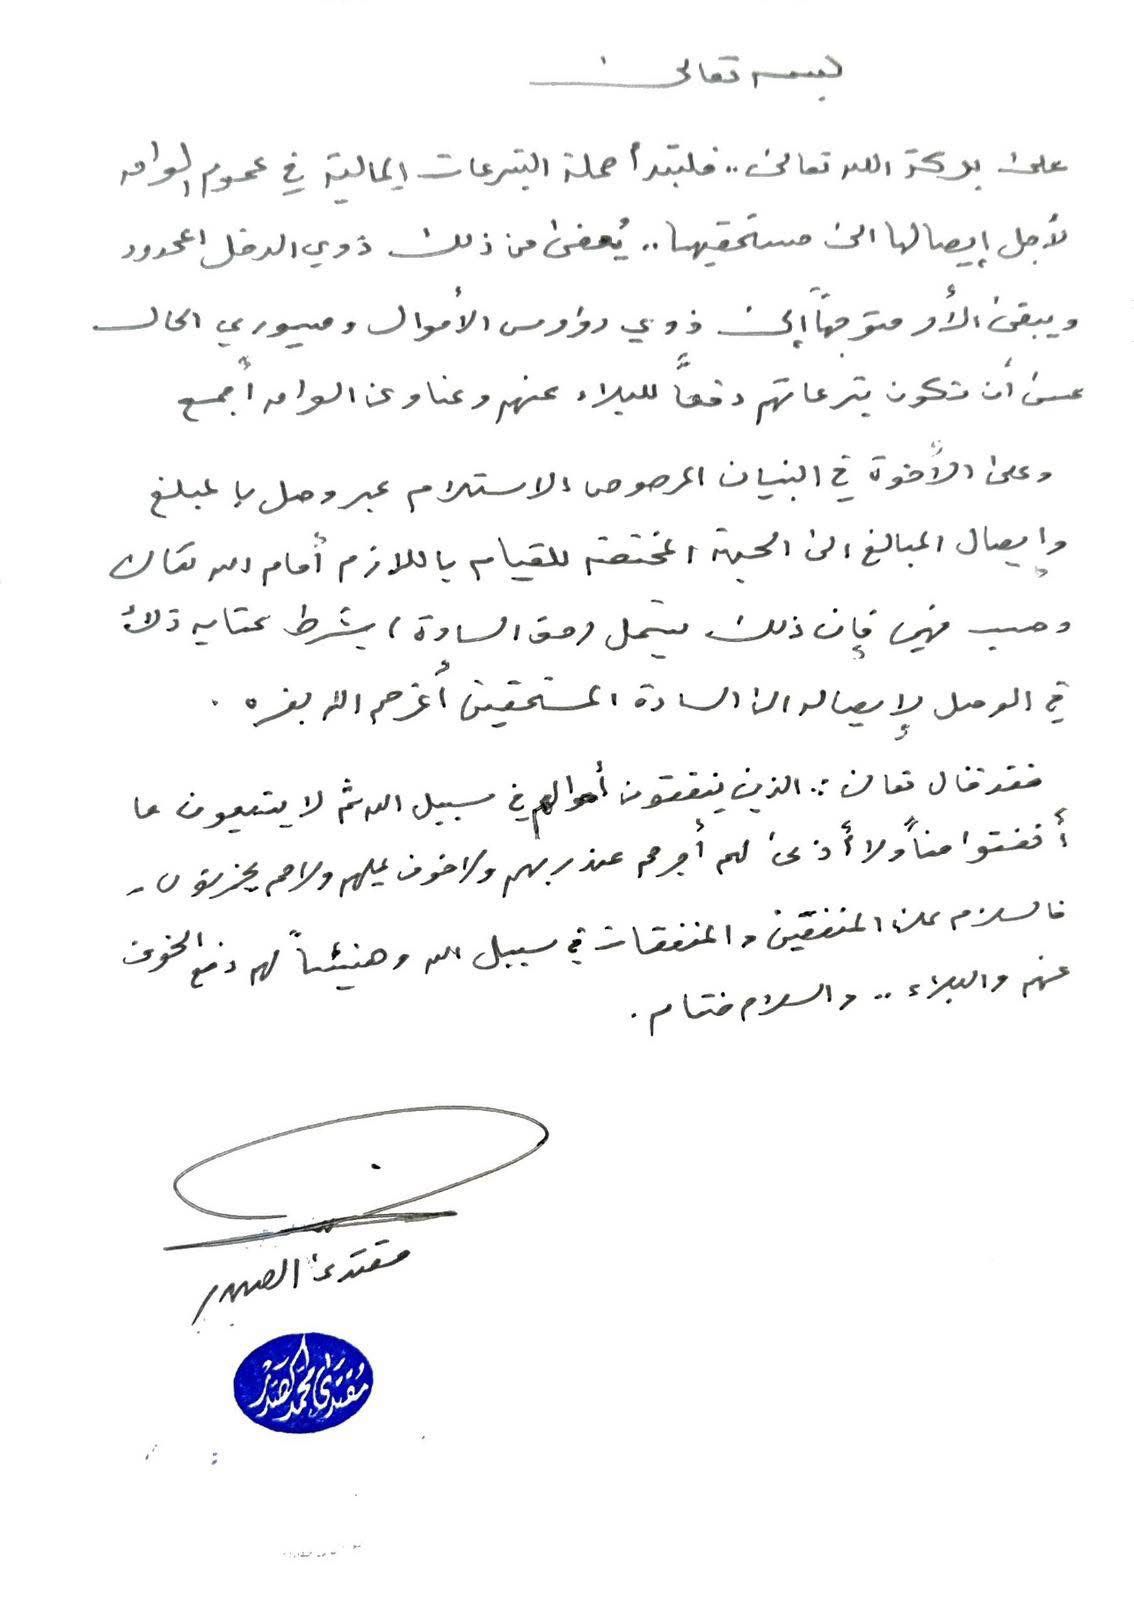 بسمه تعالى
على بركة الله تعالى.. فلتبدأ حملة التبرعات المالية في عموم العراق
لأجل إيصالها الى مستحقيها.. يُعفى من ذلك ذوي الدخل المحدود
ويبقى الأمر متوجهاً إلى ذوي رؤوس الأموال وميسوري الحال
عسى أن تكون تبرعاتهم دفعاً للبلاء عنهم وعنا وعن العراق أجمع
وعلى الأخوة في البنيان المرصوص الاستلام عبر وصل بالمبلغ
وإيصال المبالغ الى الجهة المختصة للقيام باللازم أمام الله تعالى
وحسب فهمي فإن ذلك يشمل (حق السادة) بشرط كتابة ذلك
في الوصل لإيصاله الى السادة المستحقين أعزهم الله بعزه .
فقد قال تعالى : الذين ينفقون أموالهم في سبيل الله ثم لا يتبعون ما
أنفقوا مناً ولا أذى لهم أجرهم عند ربهم ولا خوف عليهم ولا هم يحزنون -
فالسلام على المنفقين والمنفقات في سبيل الله وهنيئاً لهم دفع الخوف
عنهم والبلاء .. والسلام ختام .
مقتدى الصدر
مقتدى محمد الصدر